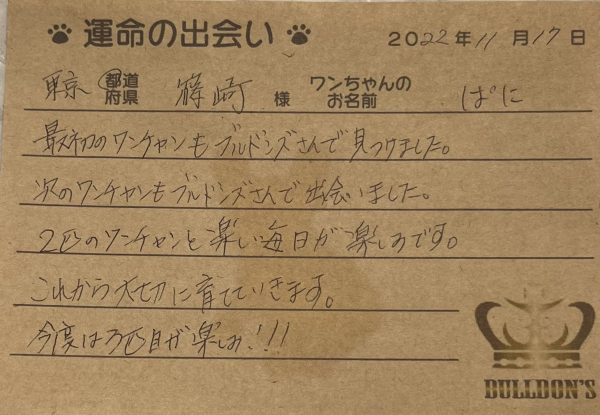 運命の出会い 2022年11月17日
東京 都道府県 篠崎 様 ワンちゃんのお名前 ぱに
最初のワンチャンもブルドンズさんで見つけました。
次のワンチャンもブルドンズさんで出会いました。
2匹のワンチャンと楽しい毎日が楽しみです。
これから大切に育てていきます。
今度は3匹目が楽しみ!!!
BULLDON'S